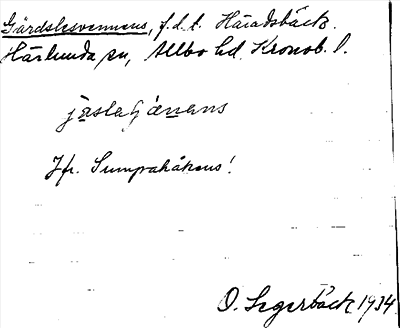 Gärdslesvennens, f.d.t. Häradsbäck.
Härlunda sn, Allbo hd Kronob. l.
Jfr. Sumpahåkens!
O. Segerbäck 1934